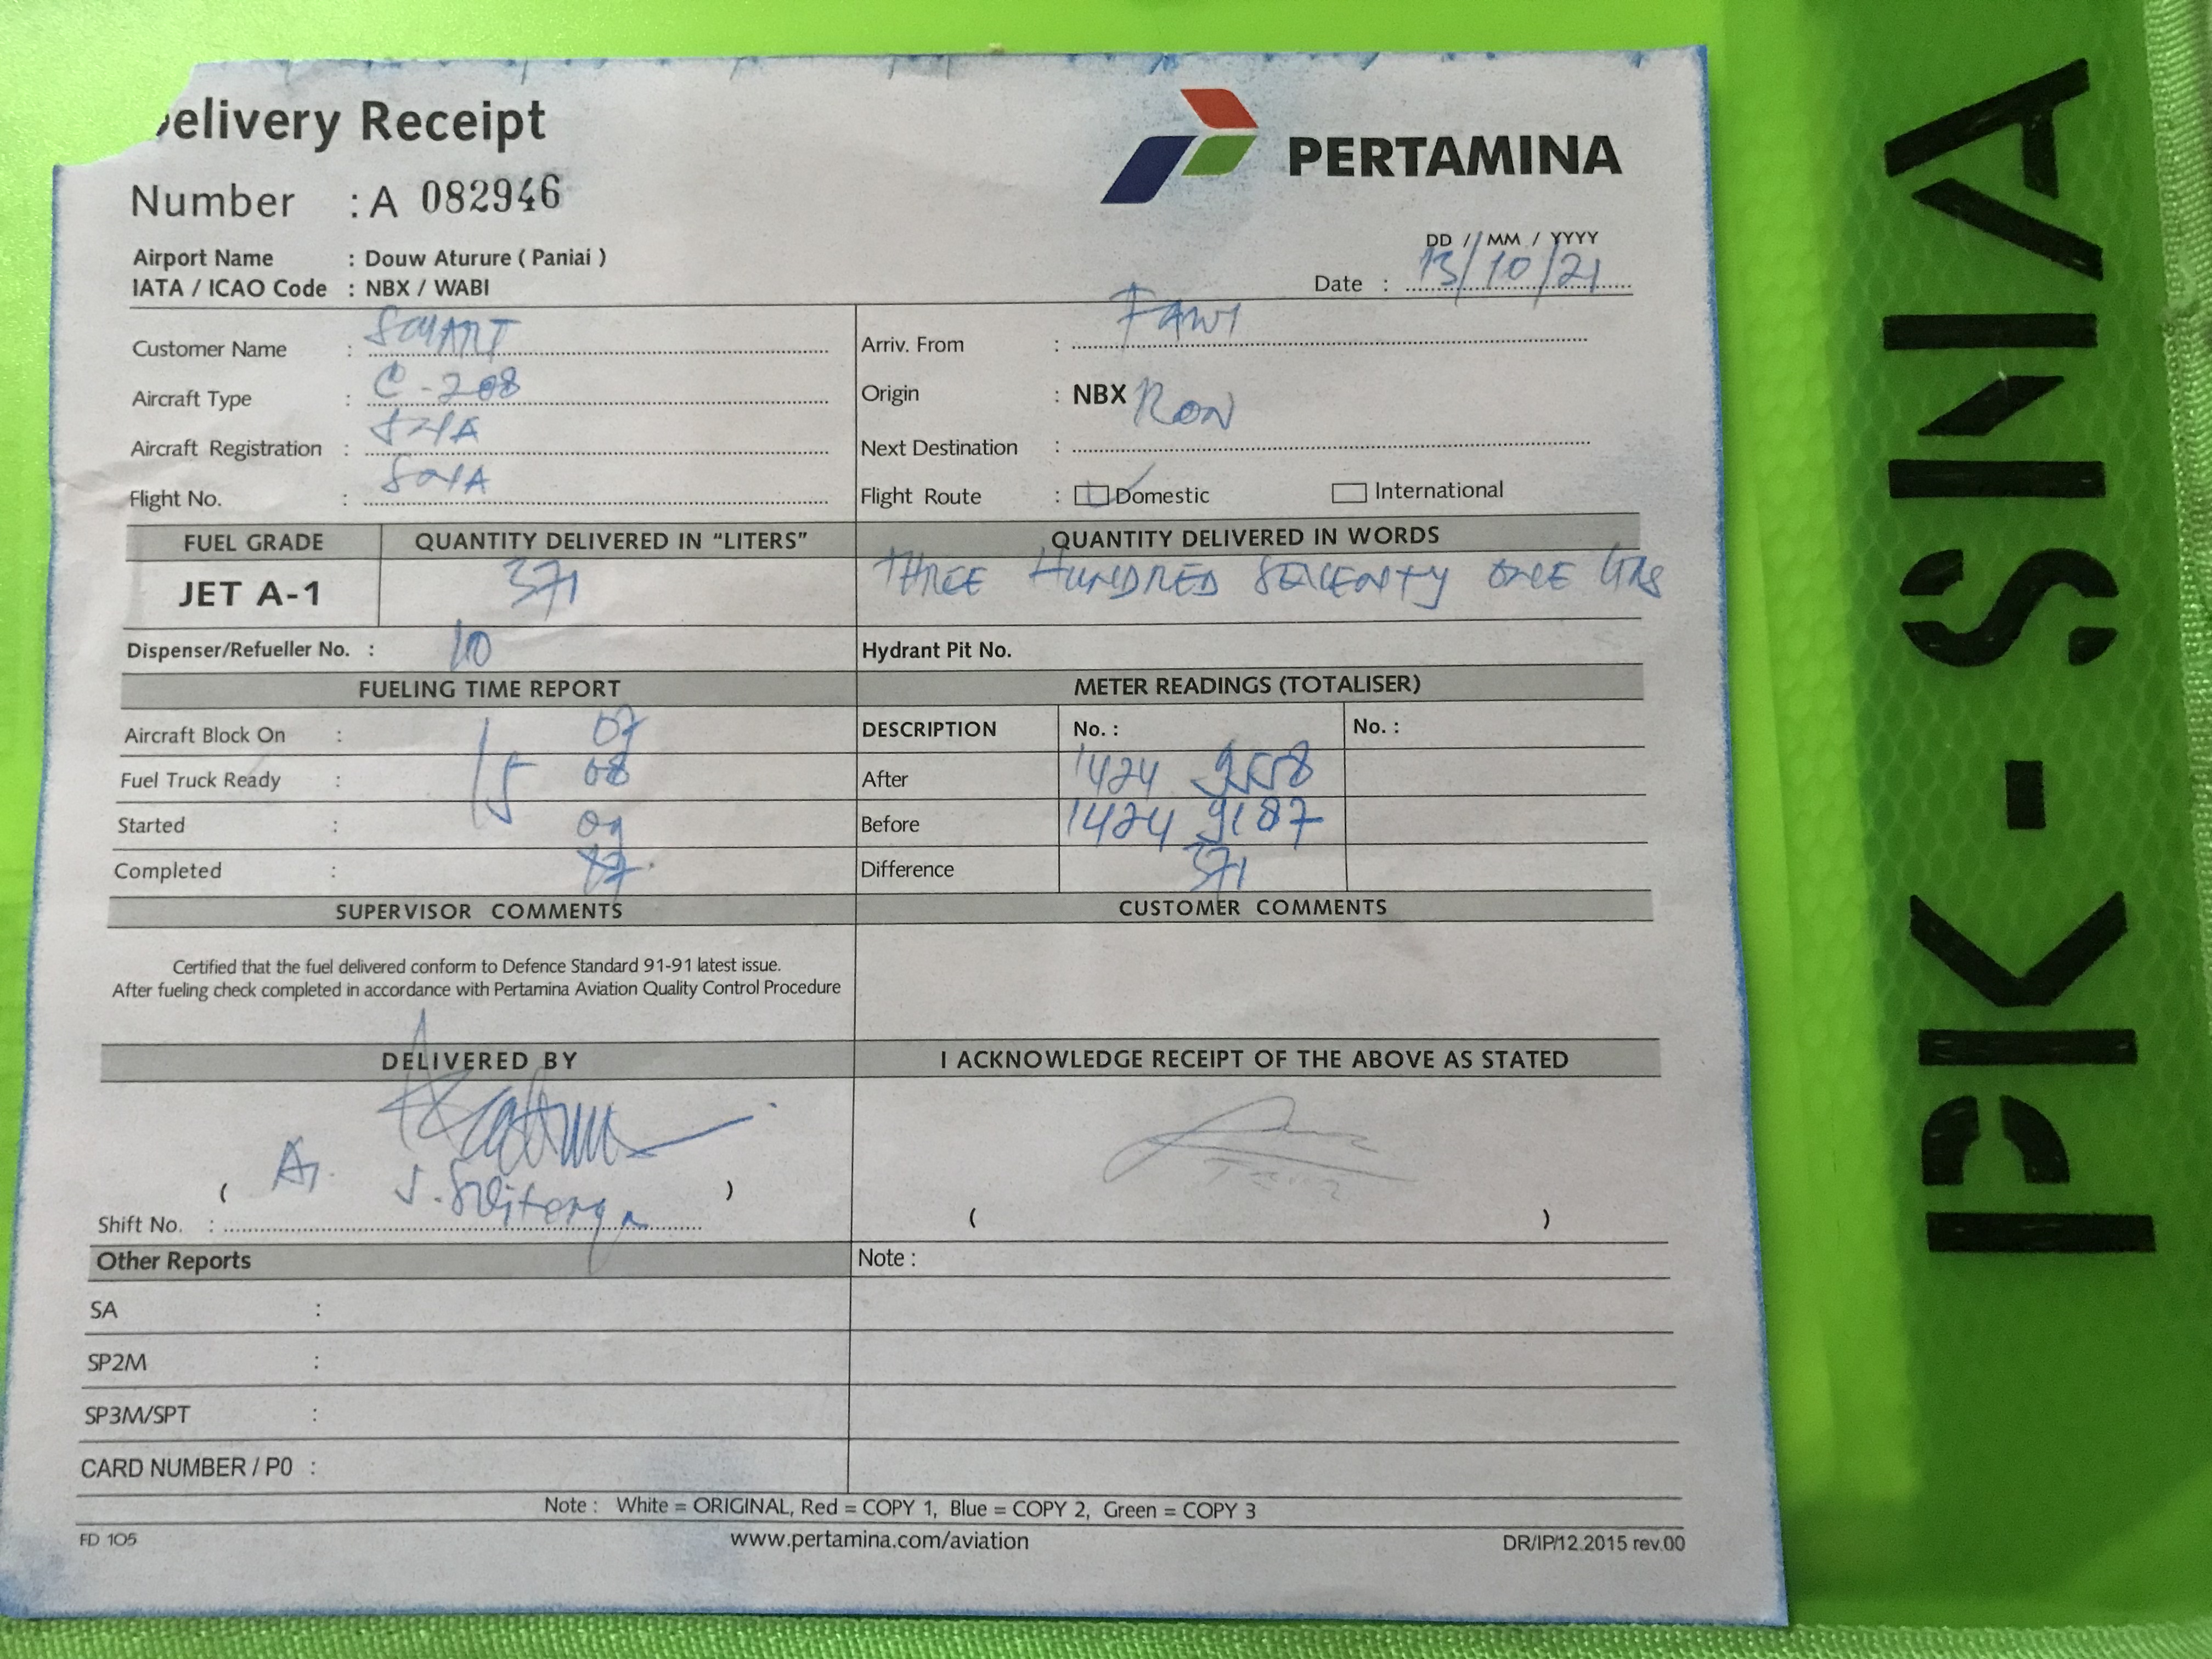 elivery Receipt
PERTAMINA
Number : A 082946
Airport Name : Douw Aturure ( Paniai )
IATA / ICAO Code : NBX / WABI
DD / MM / YYYY
Date : 13/10/21
Customer Name : SMART
Arriv. From : FAWI
Aircraft Type : C-208
Origin : NBX
Aircraft Registration :
Next Destination : RON
Flight No. :
Flight Route : Domestic International
FUEL GRADE QUANTITY DELIVERED IN "LITERS" QUANTITY DELIVERED IN WORDS
JET A-1 371 THREE HUNDRED SEVENTY ONE LTRS
Dispenser/Refueller No. : 10 Hydrant Pit No.
FUELING TIME REPORT METER READINGS (TOTALISER)
Aircraft Block On : 07 DESCRIPTION No. : No. :
Fuel Truck Ready : 15 08 After 1424 9558
Started : 09 Before 1424 9187
Completed : 17 Difference 371
SUPERVISOR COMMENTS CUSTOMER COMMENTS
Certified that the fuel delivered conform to Defence Standard 91-91 latest issue.
After fueling check completed in accordance with Pertamina Aviation Quality Control Procedure
DELIVERED BY I ACKNOWLEDGE RECEIPT OF THE ABOVE AS STATED
( )
Shift No. : ( )
Other Reports Note :
SA :
SP2M :
SP3M/SPT :
CARD NUMBER / P0 :
Note : White = ORIGINAL, Red = COPY 1, Blue = COPY 2, Green = COPY 3
FD 105 www.pertamina.com/aviation DR/IP/12.2015 rev.00
PK - SNA